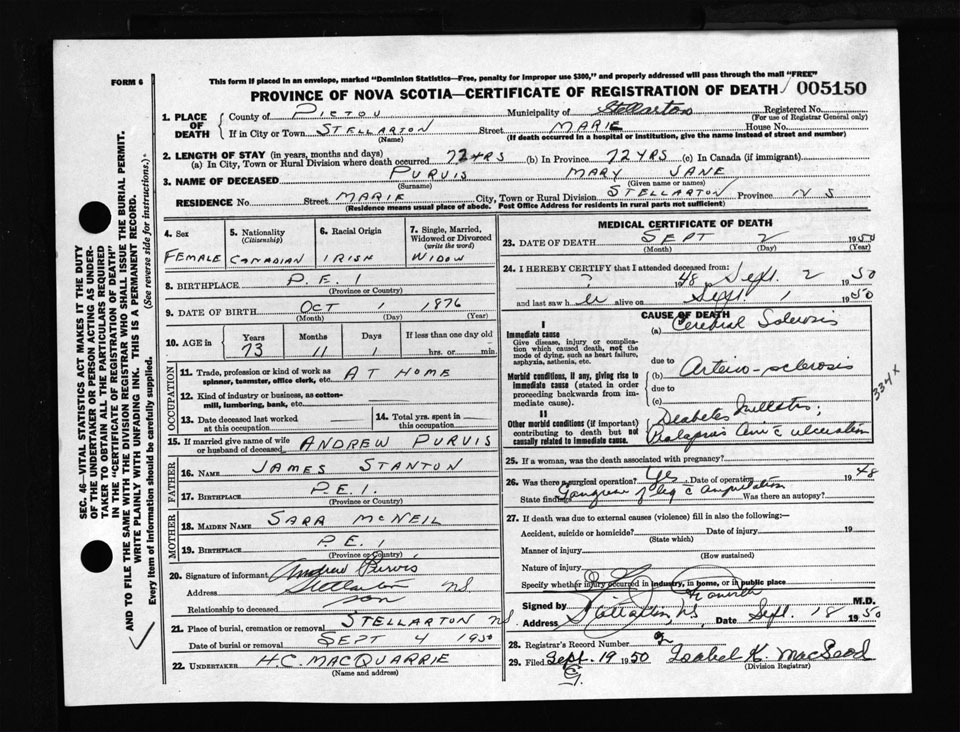 This form if placed in an envelope, marked "Dominion Statistics—Free, penalty for improper use $300," and properly addressed will pass through the mail "FREE"
FORM 6
PROVINCE OF NOVA SCOTIA—CERTIFICATE OF REGISTRATION OF DEATH 005150
1. PLACE OF DEATH
County of PICTOU Municipality of Stellarton Registered No.
(For use of Registrar General only)
If in City or Town STELLARTON Street MARIE House No.
(Name) (If death occurred in a hospital or institution, give the name instead of street and number)
2. LENGTH OF STAY (in years, months and days)
(a) In City, Town or Rural Division where death occurred 72 YRS (b) In Province 72 YRS (c) In Canada (if immigrant)
3. NAME OF DECEASED PURVIS MARY JANE
(Surname) (Given name or names)
RESIDENCE No. Street MARIE City, Town or Rural Division STELLARTON Province N S
(Residence means usual place of abode. Post Office Address for residents in rural parts not sufficient)
4. Sex
FEMALE
5. Nationality
(Citizenship)
CANADIAN
6. Racial Origin
IRISH
7. Single, Married, Widowed or Divorced
(write the word)
WIDOW
8. BIRTHPLACE P. E. I
(Province or Country)
9. DATE OF BIRTH OCT 1 1876
(Month) (Day) (Year)
10. AGE in Years Months Days If less than one day old
73 11 1 hrs. or min.
OCCUPATION
11. Trade, profession or kind of work as spinner, teamster, office clerk, etc. AT HOME
12. Kind of industry or business, as cotton-mill, lumbering, bank, etc.
13. Date deceased last worked at this occupation
14. Total yrs. spent in this occupation
15. If married give name of wife or husband of deceased ANDREW PURVIS
FATHER
16. NAME JAMES STANTON
17. BIRTHPLACE P. E. I.
(Province or Country)
MOTHER
18. MAIDEN NAME SARA MCNEIL
19. BIRTHPLACE P. E. I
(Province or Country)
20. Signature of informant Andrew Purvis
Address Stellarton N.S.
Relationship to deceased son
21. Place of burial, cremation or removal STELLARTON N S
Date of burial or removal SEPT 4 1950
22. UNDERTAKER H.C. MACQUARRIE
(Name and address)
MEDICAL CERTIFICATE OF DEATH
23. DATE OF DEATH SEPT 2 1950
(Month) (Day)
24. I HEREBY CERTIFY that I attended deceased from:
? 1948 Sept. 2 1950
and last saw h er alive on Sept 1 1950
CAUSE OF DEATH
I
Immediate cause
Give disease, injury or complication which caused death, not the mode of dying, such as heart failure, asphyxia, asthenia, etc.
(a) Cerebral Sclerosis
due to
Morbid conditions, if any, giving rise to immediate cause (stated in order proceeding backwards from immediate cause).
(b) Arterio-sclerosis
due to
(c)
334X
II
Other morbid conditions (if important) contributing to death but not causally related to immediate cause.
Diabetes Mellitus;
ulceration
25. If a woman, was the death associated with pregnancy?
26. Was there a surgical operation? Yes Date of operation 1948
State findings Gangrene of leg c amputation Was there an autopsy?
27. If death was due to external causes (violence) fill in also the following:
Accident, suicide or homicide? Date of injury 19
(State which)
Manner of injury
(How sustained)
Nature of injury
Specify whether injury occurred in industry, in home, or in public place
Signed by M.D.
Address Stellarton, N.S Date Sept. 18 1950
28. Registrar's Record Number
29. Filed Sept. 19 1950 Isabel K. MacLeod
(Division Registrar)
SEC. 46—VITAL STATISTICS ACT MAKES IT THE DUTY
OF THE UNDERTAKER OR PERSON ACTING AS UNDER-
TAKER TO OBTAIN ALL THE PARTICULARS REQUIRED
IN THE "CERTIFICATE OF REGISTRATION OF DEATH"
AND TO FILE THE SAME WITH THE DIVISION REGISTRAR WHO SHALL ISSUE THE BURIAL PERMIT.
WRITE PLAINLY WITH UNFADING INK. THIS IS A PERMANENT RECORD.
Every item of information should be carefully supplied. (See reverse side for instructions.)